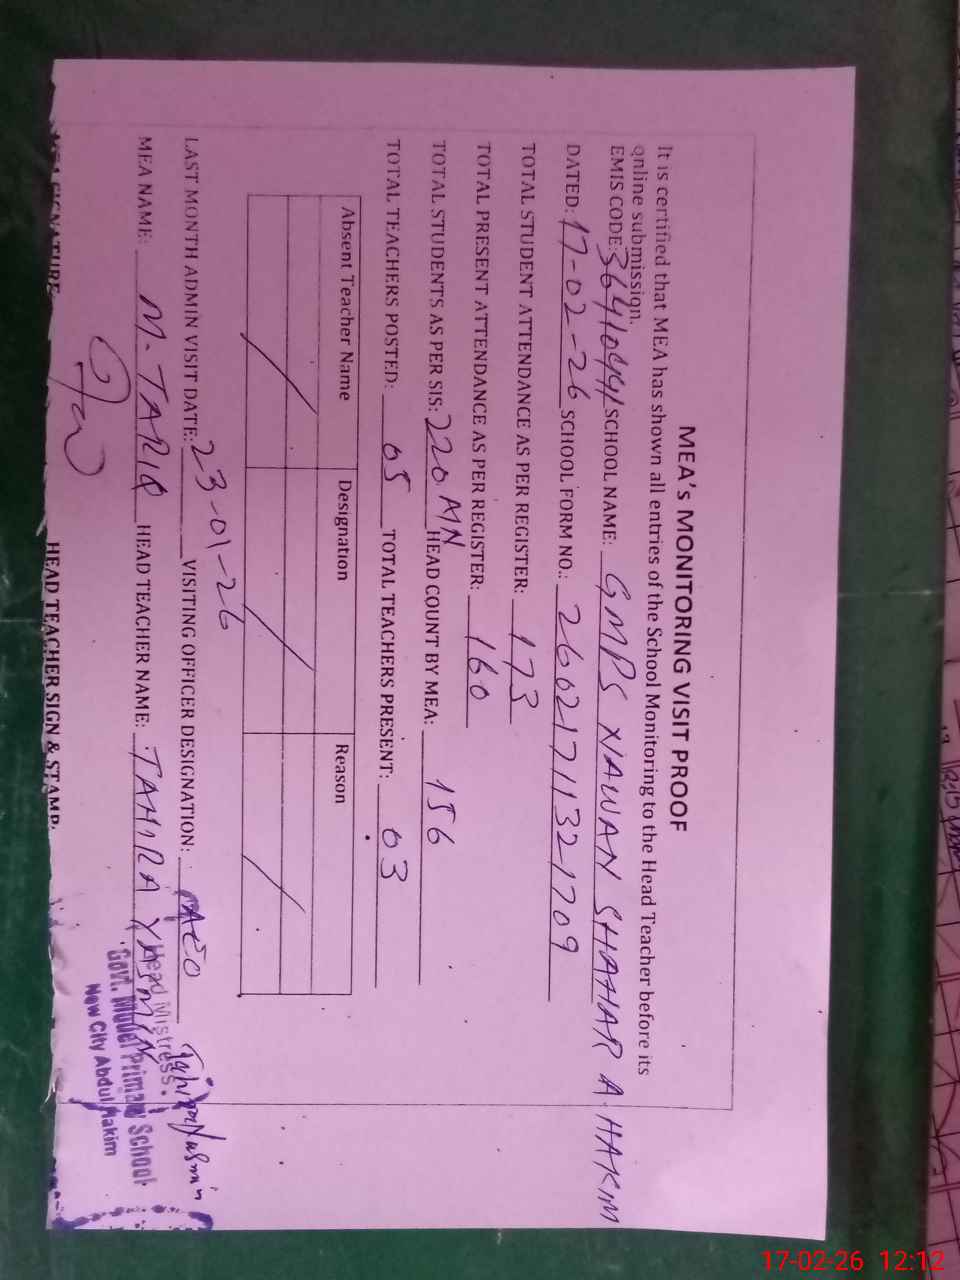 MEA's MONITORING VISIT PROOF
It is certified that MEA has shown all entries of the School Monitoring to the Head Teacher before its
online submission.
EMIS CODE: 36410441 SCHOOL NAME: GMPS NAWAN SHAHAR A. HAKIM
DATED: 17-02-26 SCHOOL FORM NO.: 26021711321709
TOTAL STUDENT ATTENDANCE AS PER REGISTER: 173
TOTAL PRESENT ATTENDANCE AS PER REGISTER: 160
TOTAL STUDENTS AS PER SIS: 220 MN HEAD COUNT BY MEA: 156
TOTAL TEACHERS POSTED: 05 TOTAL TEACHERS PRESENT: 03
Absent Teacher Name Designation Reason
LAST MONTH ADMIN VISIT DATE: 23-01-26 VISITING OFFICER DESIGNATION: AEO
MEA NAME: M. TARIQ HEAD TEACHER NAME: TAHIRA YASMIN
Tahira Yasmin
MEA SIGNATURE HEAD TEACHER SIGN & STAMP:
Head Mistress
Govt. Model Primary School
New City Abdul Hakim
17-02-26 12:12